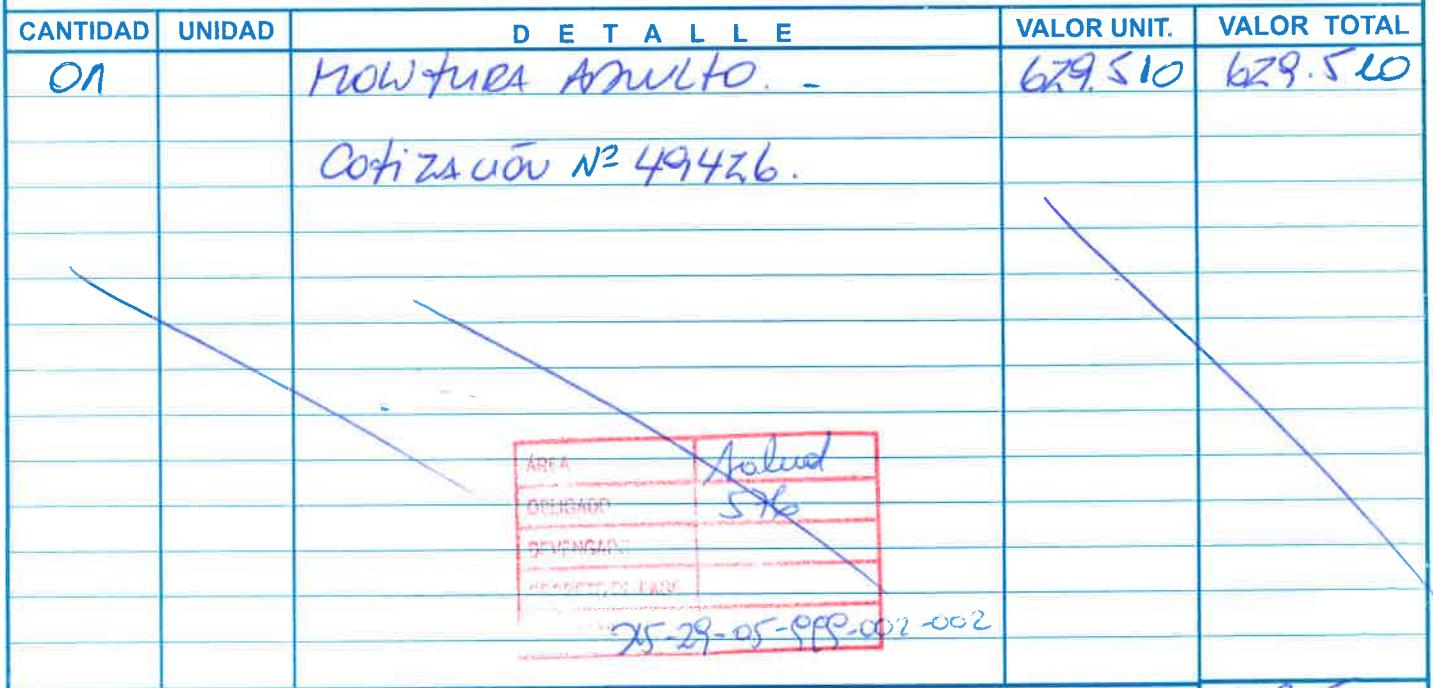 CANTIDAD UNIDAD DETALLE VALOR UNIT. VALOR TOTAL
01 MONTURA ADULTO. - 629.510 629.510
Cotización Nº 49426.
AREA Salud
OBLIGADO 576
DEVENGADO